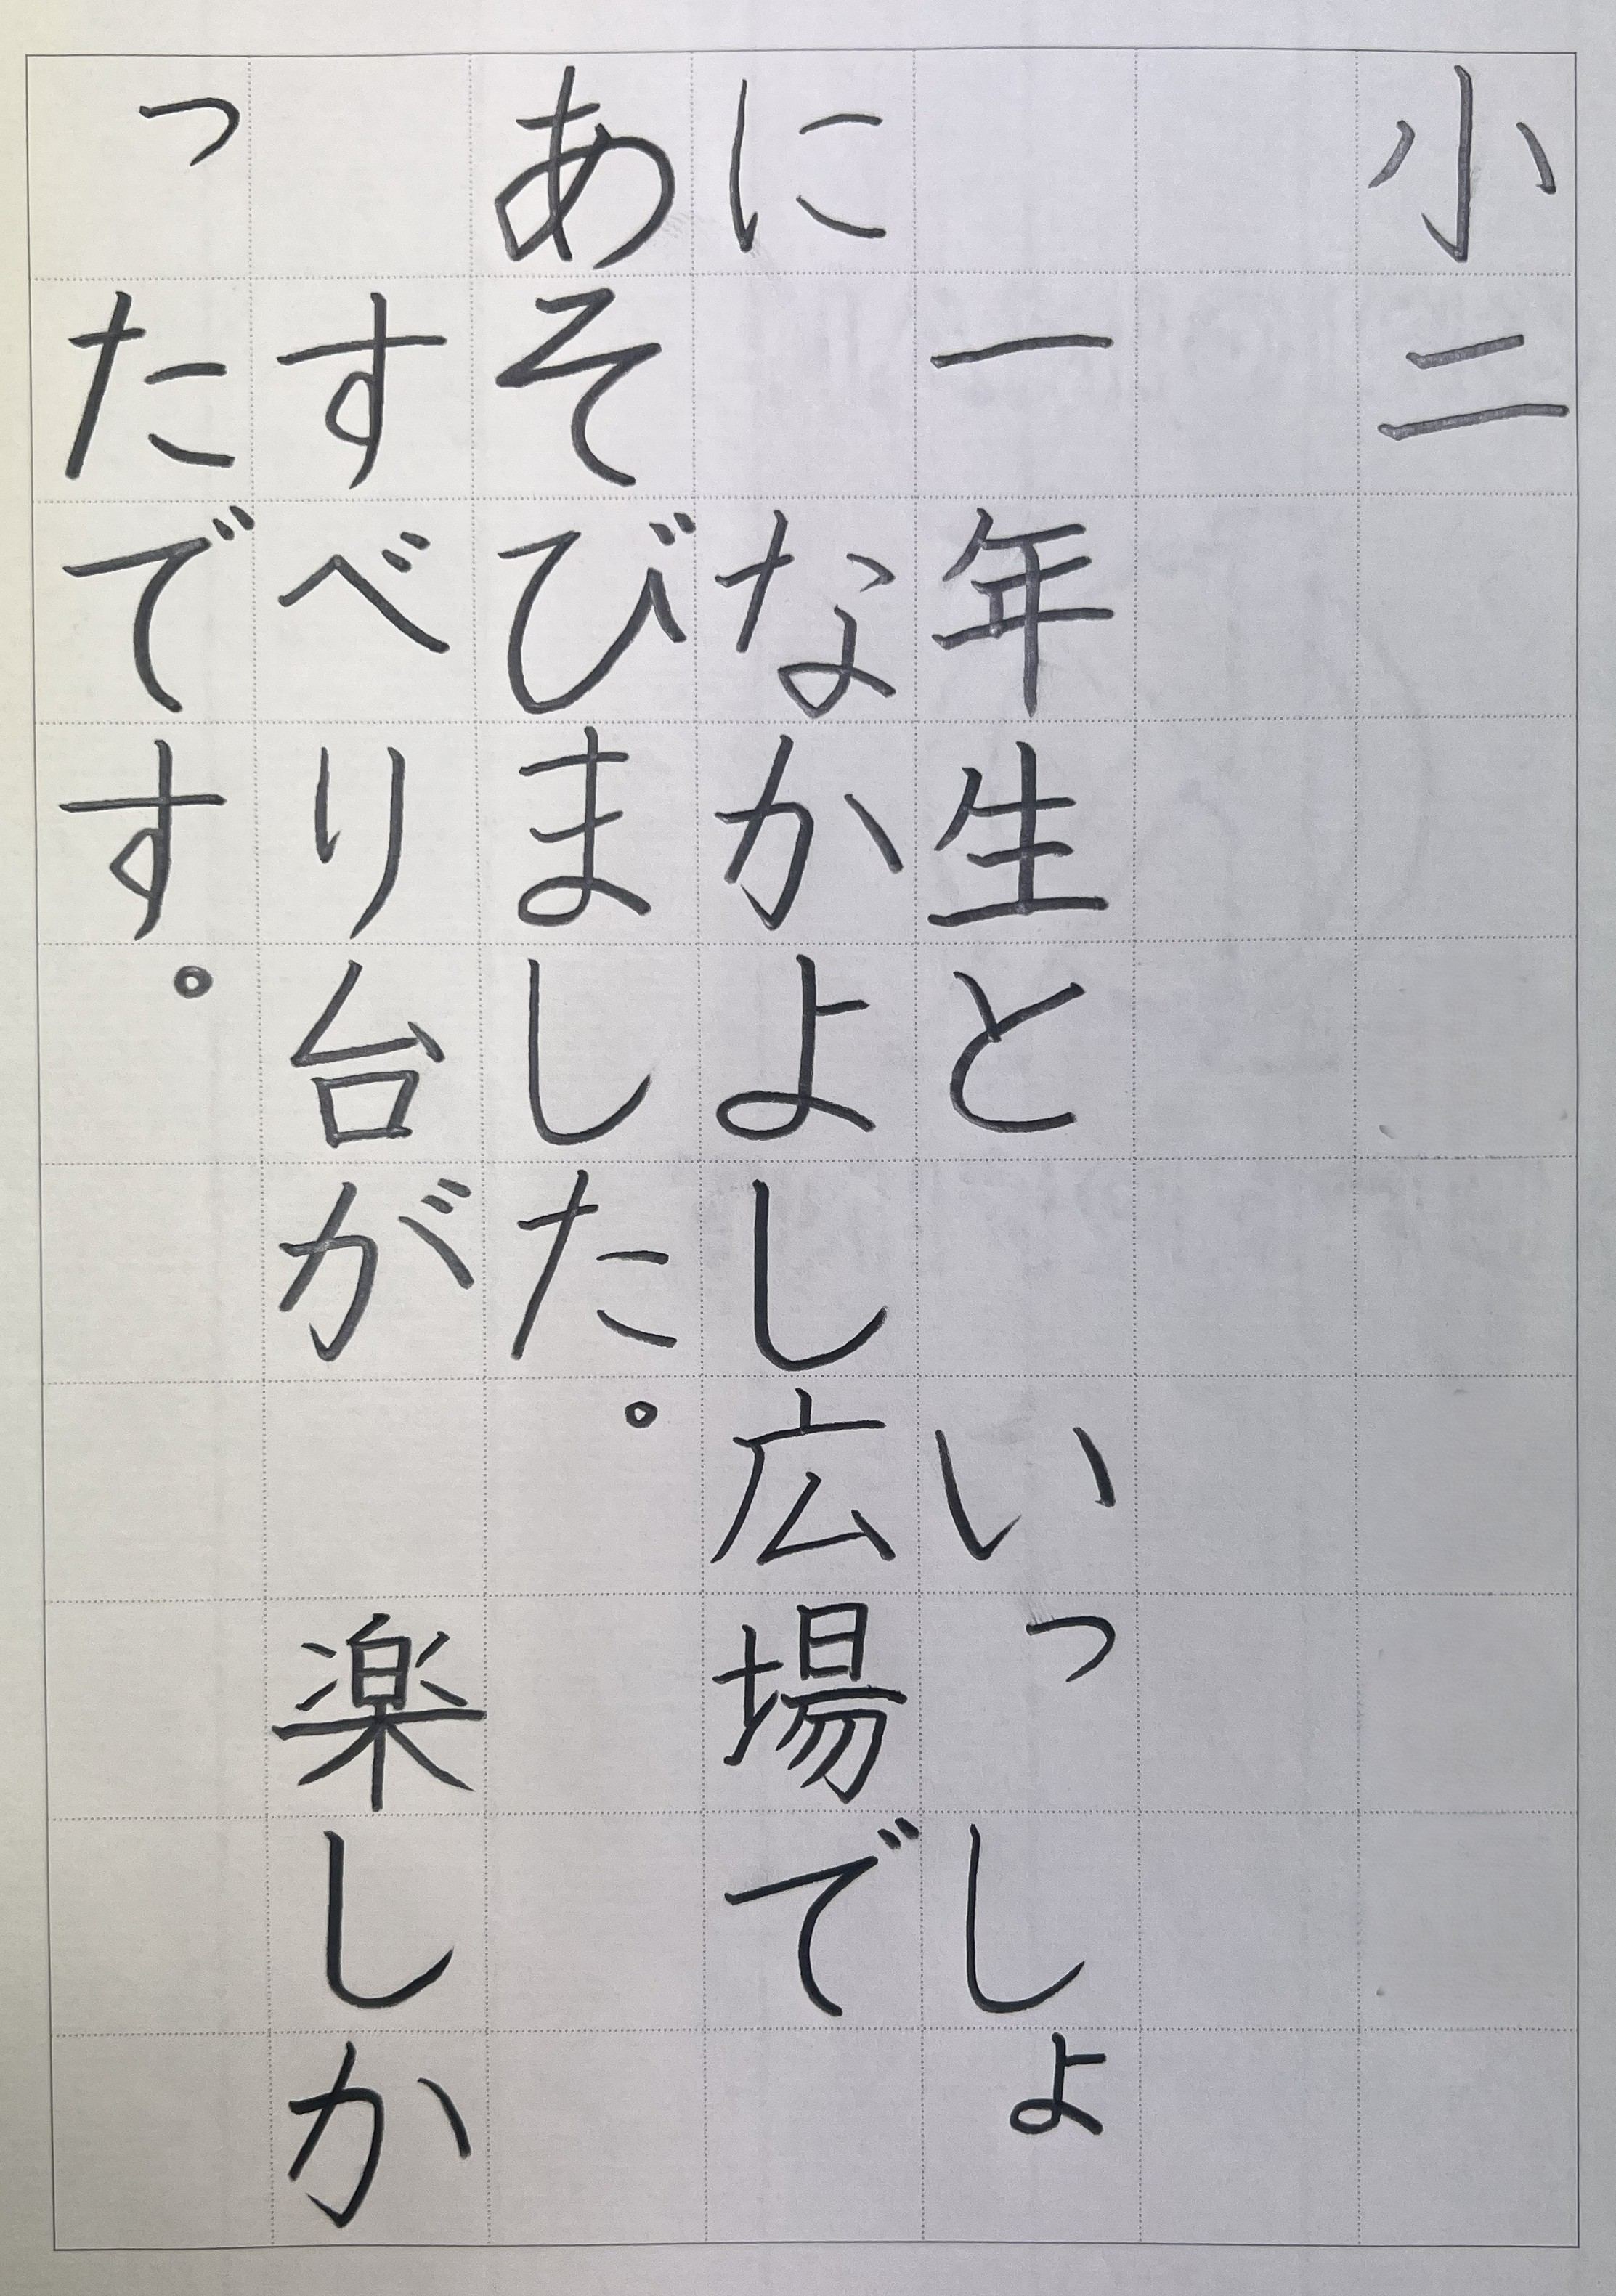 小二
　一年生と　いっしょ
に　なかよし広場で
あそびました。
　すべり台が　楽しか
ったです。